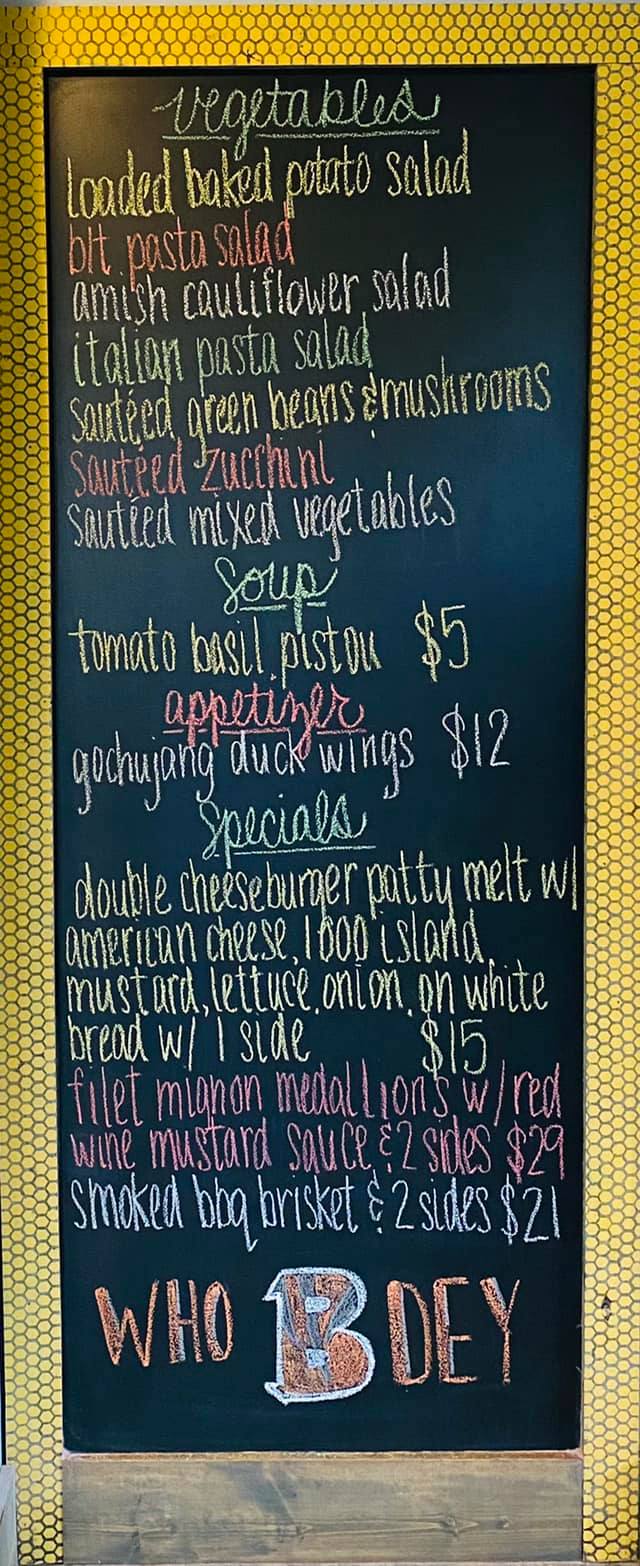 vegetables
loaded baked potato salad
blt pasta salad
amish cauliflower salad
italian pasta salad
sautéed green beans & mushrooms
sautéed zucchini
sautéed mixed vegetables
soup
tomato basil pistou $5
appetizer
gochujang duck wings $12
specials
double cheeseburger patty melt w/
american cheese, 1000 island,
mustard, lettuce, onion, on white
bread w/ 1 side $15
filet mignon medallions w/ red
wine mustard sauce & 2 sides $29
smoked bbq brisket & 2 sides $21
WHO B DEY